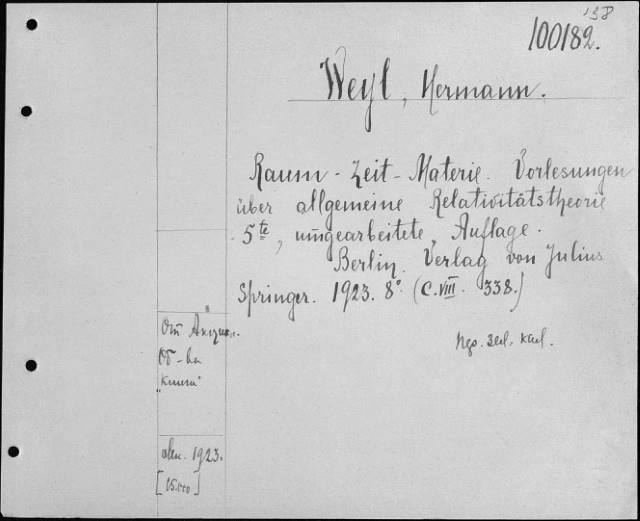 138
100182.
Weyl, Hermann.
Raum - Zeit - Materie. Vorlesungen
über allgemeine Relativitätstheorie
5te, umgearbeitete, Auflage.
Berlin. Verlag von Julius
Springer. 1923. 8° (C. VIII. 338.)
От Акцион.
Об-ва
"Книга"
1923.